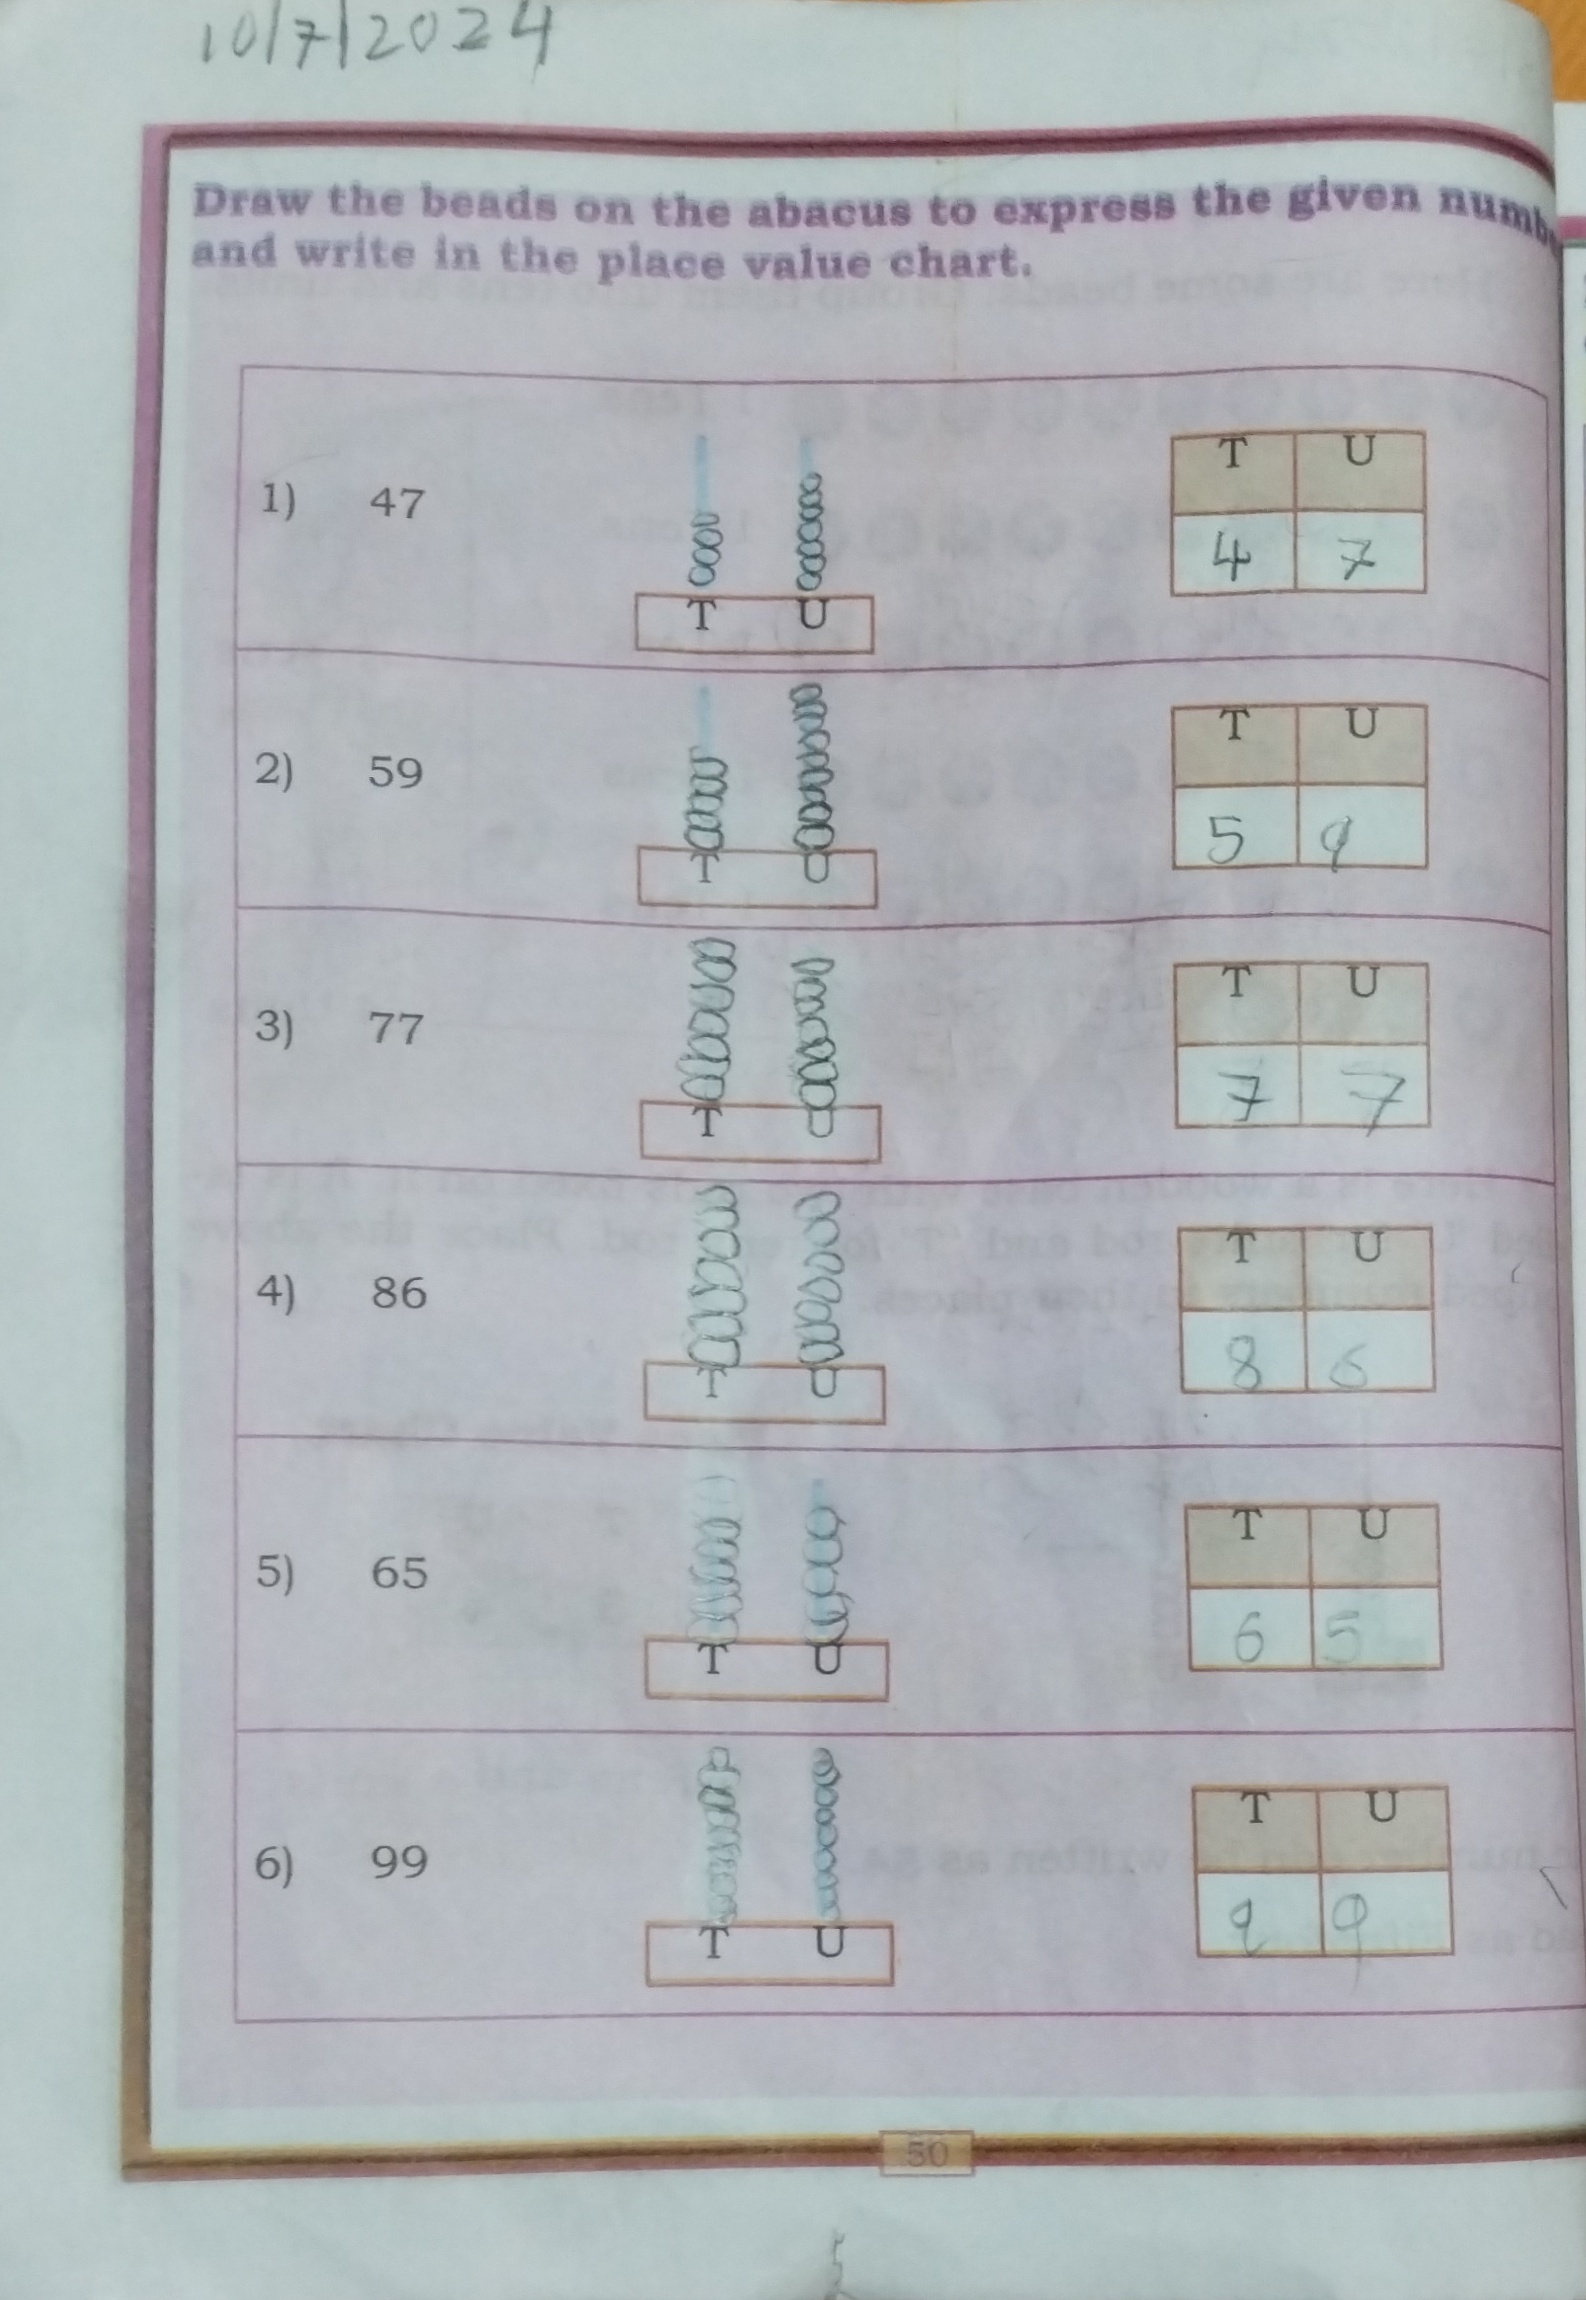 10/7/2024
Draw the beads on the abacus to express the given numb
and write in the place value chart.
1) 47
T U
T U
4 7
2) 59
T U
T U
5 9
3) 77
T U
T U
7 7
4) 86
T U
T U
8 6
5) 65
T U
T U
6 5
6) 99
T U
T U
9 9
50